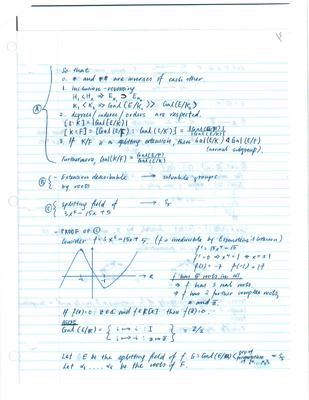 So that
0. * and ** are inverses of each other
1. Inclusion-reversing
H₁ < H₂ ⇒ E_H₁ ⊃ E_H₂
K₁ < K₂ ⇒ Gal(E/K₁) > Gal(E/K₂)
2. degrees/indexes/orders are respected.
[E:K] = |Gal(E/K)|
[K:F] = [Gal(E/F) : Gal(E/K)] = |Gal(E/F)| / |Gal(E/K)|
3. If K/F is a splitting extension, then Gal(E/K) ◁ Gal(E/F)
(normal subgroup).
Furthermore, Gal(K/F) = Gal(E/F) / Gal(E/K)
Ⓐ
Ⓑ - Extension describable → solvable groups
by roots
Ⓒ splitting field of → S₅
3x⁵ - 15x + 5
- PROOF OF Ⓒ
Consider f = 3x⁵ - 15x + 5 (f = irreducible by Eisenstein's theorem)
f' = 15x⁴ - 15
f' = 0 ⇒ x⁴ = 1 ⇒ x = ±1
f(1) = -7 f(-1) = 17
⇒ f has 3 real roots
⇒ has 2 further complex roots,
z and z̄.
If f(z) = 0 z ∈ ℂ and f ∈ ℝ[x] then f(z̄) = 0.
i ↦ i : I
i ↦ -i : z ↦ z̄
≅ ℤ/2
Let E be the splitting field of f. G = Gal(E/ℚ) < group of permutations = S₅
Let α₁ ... α₅ be the roots of F.